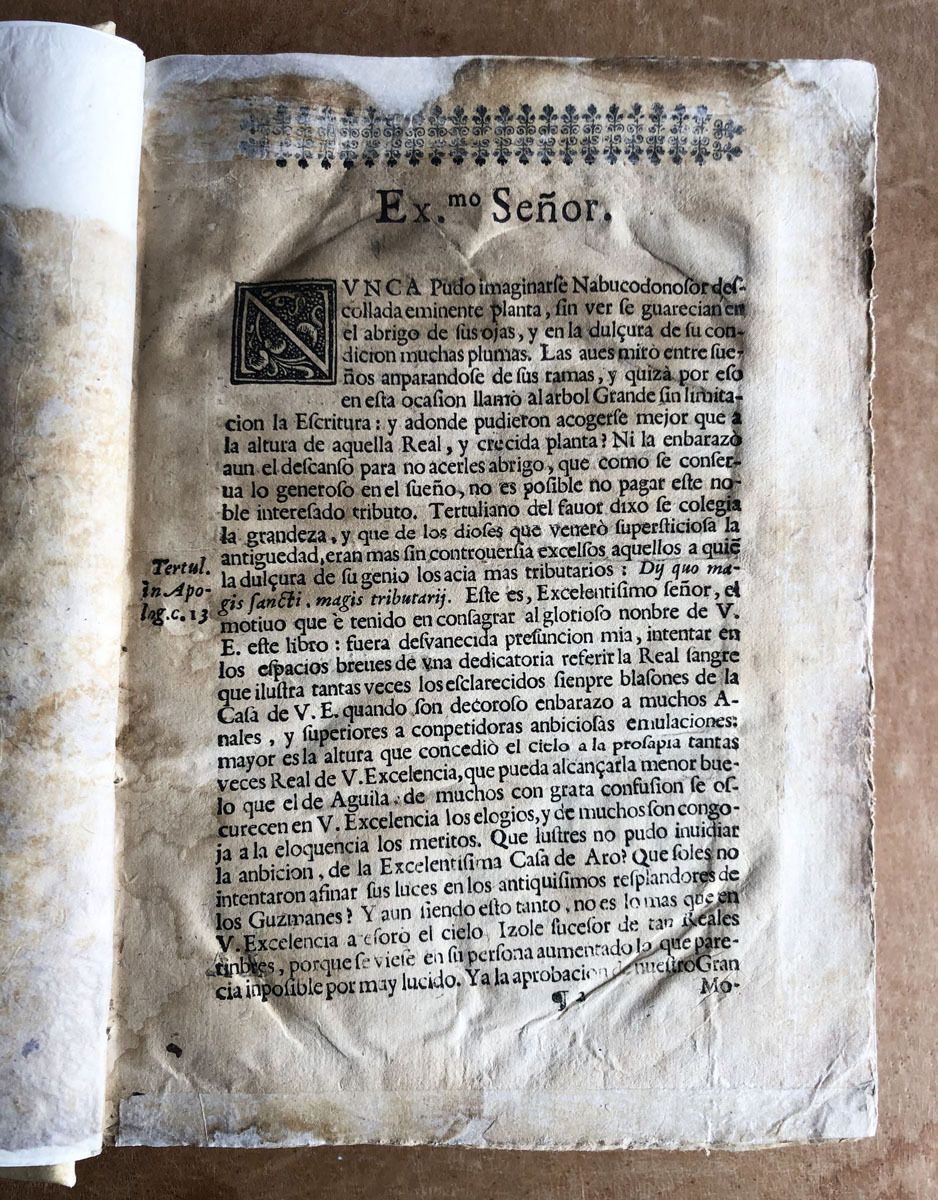 Ex.mo Señor.
NVNCA Pudo imaginarſe Nabucodonoſor deſ-
collada eminente planta, ſin ver ſe guarecian en
el abrigo de ſus ojas, y en la dulçura de ſu con-
dicion muchas plumas. Las aues mirò entre ſue-
ños anparandoſe de ſus ramas, y quizà por eſo
en eſta ocaſion llamò al arbol Grande ſin limita-
cion la Eſcritura: y adonde pudieron acogerſe mejor que à
la altura de aquella Real, y crecida planta? Ni la enbarazò
aun el deſcanſo para no acerles abrigo, que como ſe conſer-
ua lo generoſo en el ſueño, no es poſible no pagar eſte no-
ble intereſado tributo. Tertuliano del fauor dixo ſe colegia
la grandeza, y que de los dioſes que venerò ſuperſticioſa la
antiguedad, eran mas ſin controuerſia excelſos aquellos a quiẽ
la dulçura de ſu genio los acia mas tributarios: Dij quo ma-
gis ſancti, magis tributarij. Eſte es, Excelentiſimo ſeñor, el
Tertul.
in Apo-
log.c.13
motiuo que è tenido en conſagrar al glorioſo nonbre de V.
E. eſte libro: fuera deſvanecida preſuncion mia, intentar en
los eſpacios breues de vna dedicatoria referir la Real ſangre
que iluſtra tantas veces los eſclarecidos ſienpre blaſones de la
Caſa de V. E. quando ſon decoroſo enbarazo a muchos A-
nales, y ſuperiores a conpetidoras anbicioſas emulaciones:
mayor es la altura que concediò el cielo a la proſapia tantas
veces Real de V. Excelencia, que pueda alcançarla menor bue-
lo que el de Aguila. de muchos con grata confuſion ſe oſ-
curecen en V. Excelencia los elogios, y de muchos ſon congo-
ja a la eloquencia los meritos. Que luſtres no pudo inuidiar
la anbicion, de la Excelentiſima Caſa de Aro? Que ſoles no
intentaron afinar ſus luces en los antiquiſimos reſplandores de
los Guzmanes? Y aun ſiendo eſto tanto, no es lo mas que en
V. Excelencia ateſorò el cielo. Izole ſuceſor de tan Reales
tinbres, porque ſe vieſe en ſu perſona aumentado lo que pare-
cia inpoſible por muy lucido. Ya la aprobacion de nueſtro Gran
¶ 2 Mo-